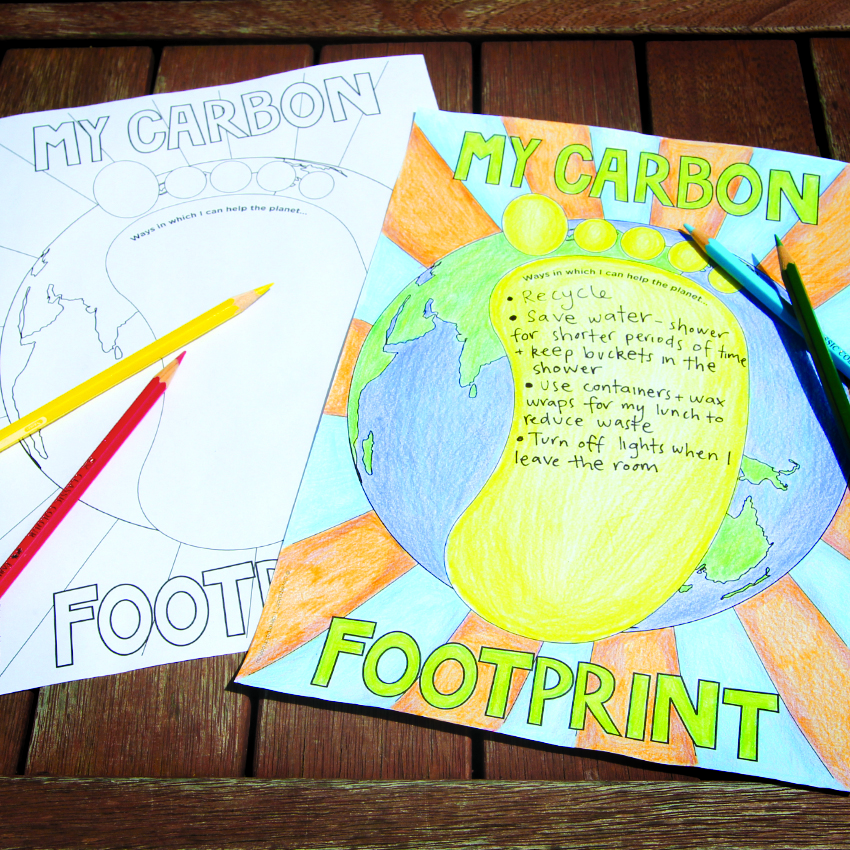 MY CARBON
Ways in which I can help the planet...
MY CARBON
Ways in which I can help the planet...
• Recycle
• Save water - shower
for shorter periods of time
+ keep buckets in the
shower
• Use containers + wax
wraps for my lunch to
reduce waste
• Turn off lights when I
leave the room
FOOTPRINT